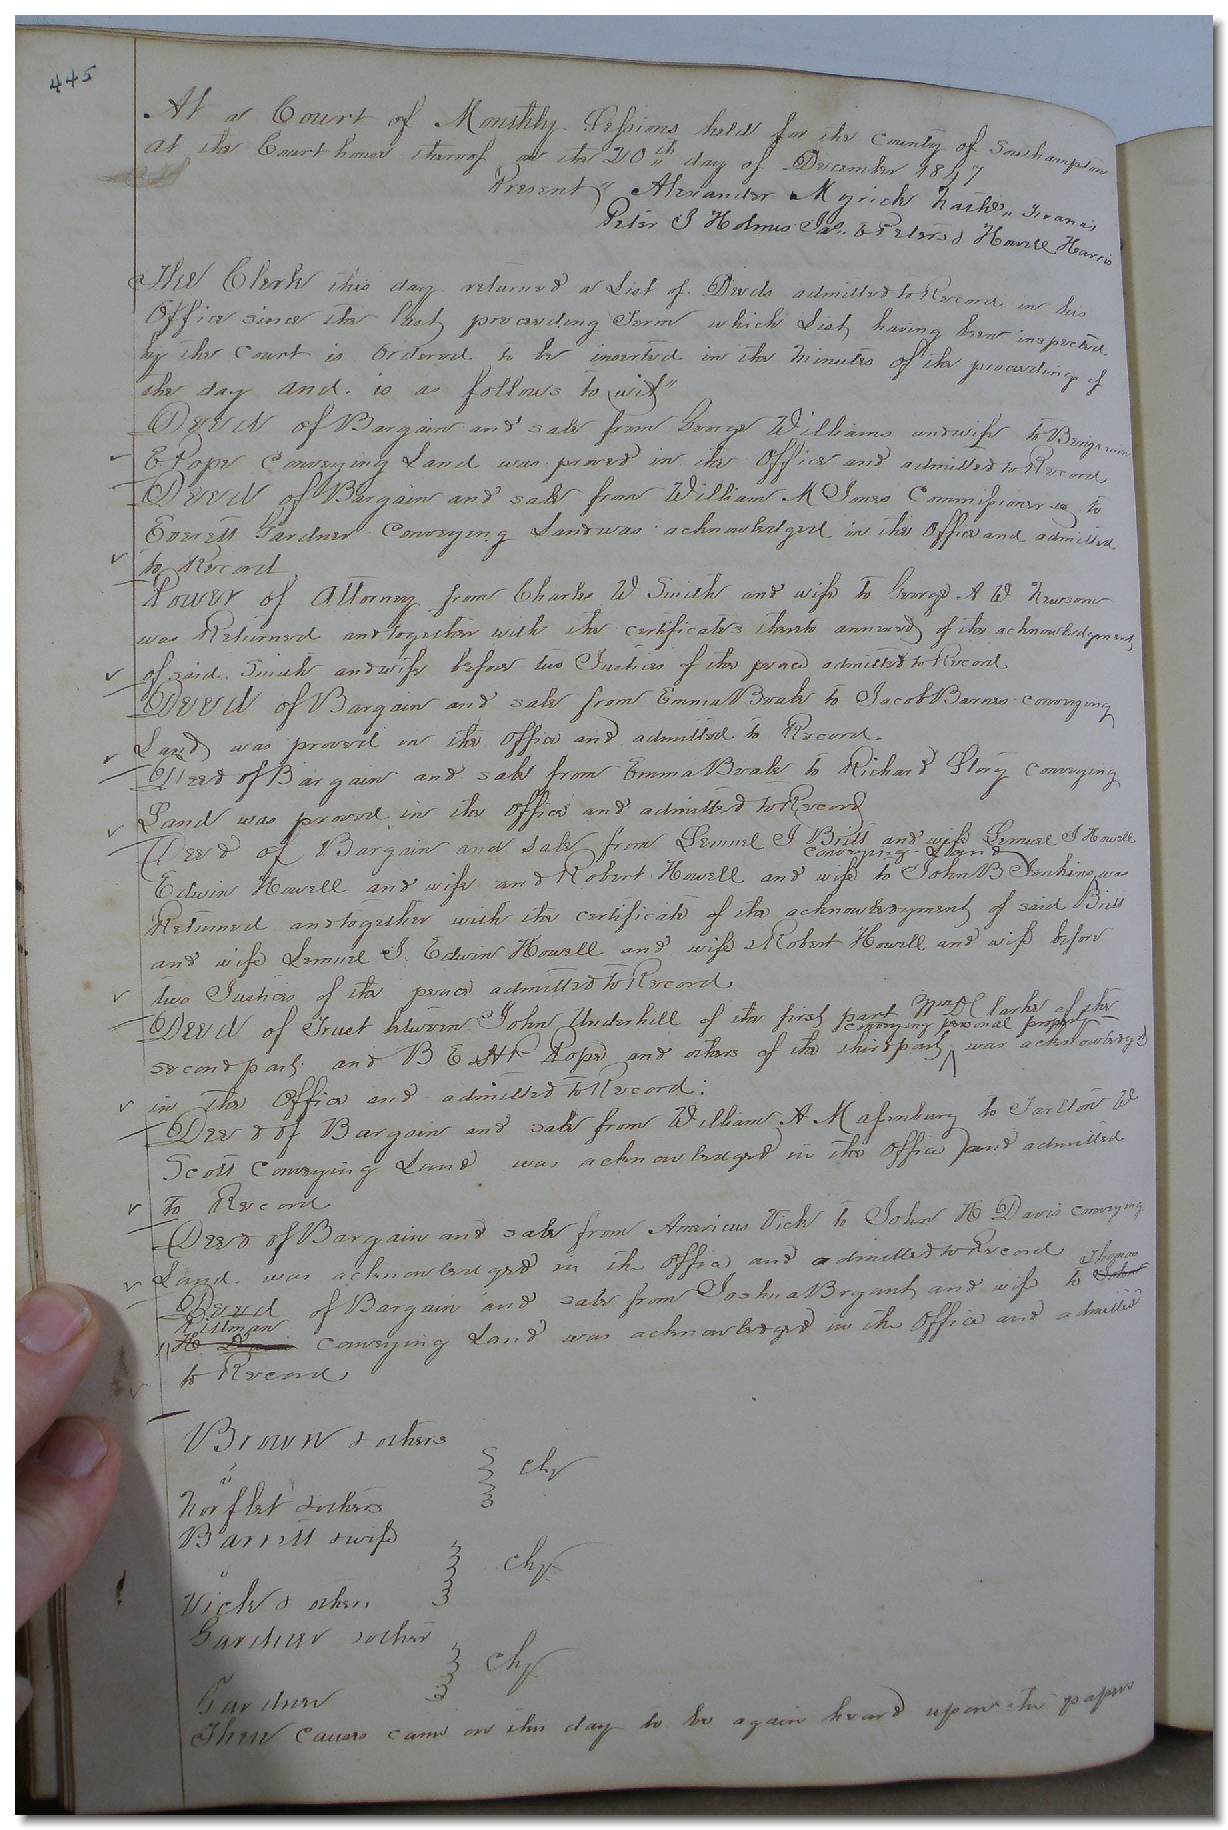 445
At a Court of Monthly Sessions held for the County of Southampton
at the Courthouse thereof on the 20th day of December 1847
Present Alexander Myrick Nath. Francis
Peter J Holmes Jas. & Peters & Howell Harris
The Clerk this day returned a List of Deeds admitted to Record in his
Office since the last preceeding Term which List having been inspected
by the Court is Ordered to be inserted in the Minutes of the proceedings of
the day and is as follows to wit"
Deed of Bargain and sale from George Williams and wife to Benjamin
E Pope Conveying Land was proved in the Office and admitted to Record
Deed of Bargain and sale from William M Jones Commissioner &c to
Everett Gardner Conveying Land was acknowledged in the Office and admitted
to Record
Power of Attorney from Charles W Smith and wife to George A W Newsom
was Returned and together with the certificates thereto annexed of the acknowledgment
of said Smith and wife before two Justices of the peace admitted to Record
Deed of Bargain and sale from Emma Beale to Jacob Barnes conveying
Land was proved in the Office and admitted to Record.
Deed of Bargain and sale from Emma Beale to Richard Story conveying
Land was proved in the Office and admitted to Record
Deed of Bargain and sale from Lemuel J Britt and wife Lemuel J Howell
conveying Land
Edwin Howell and wife and Robert Howell and wife to John B Jenkins was
Returned and together with the certificate of the acknowledgment of said Britt
and wife Lemuel J. Edwin Howell and wife & Robert Howell and wife before
two Justices of the peace admitted to Record
Deed of Trust between John Underhill of the first part Wm D Clarke of the
conveying personal property
second part and B E & H Pope and others of the third part was acknowledged
in the Office and admitted to Record.
Deed of Bargain and sale from William A Massenburg to Carlton W
Scott Conveying Land was acknowledged in the Office and admitted
to Record
Deed of Bargain and sale from Americus Vick to John H Davis conveying
Land was acknowledged in the Office and admitted to Record
Thomas
Deed of Bargain and sale from Joshua Bryant and wife to John
Pittman
H Davis conveying Land was acknowledged in the Office and admitted
to Record
Brown & others
" } Chy
Norflet & others
Barrett & wife
" } Chy
Vick & others
Gardner & other
} Chy
Gardner
These causes came on this day to be again heard upon the papers